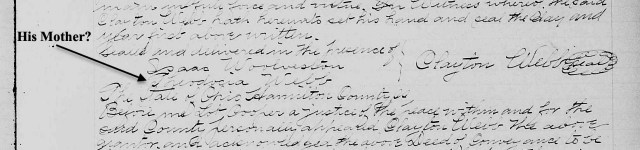 main in full force and virtue. In Witness whereof, the said
Clayton Webb hath hereunto set his hand and seal the day and
year first above written.
His Mother?
Sealed and delivered in the presence of
Isaac Woolverton
Clayton Webb (Seal)
Theodosia Webb
The State of Ohio Hamilton County ss
Before me Cooper a justice of the peace within and for the
said County personally appeared Clayton Webb the above
grantor and acknowledged the above Deed of Conveyance to be